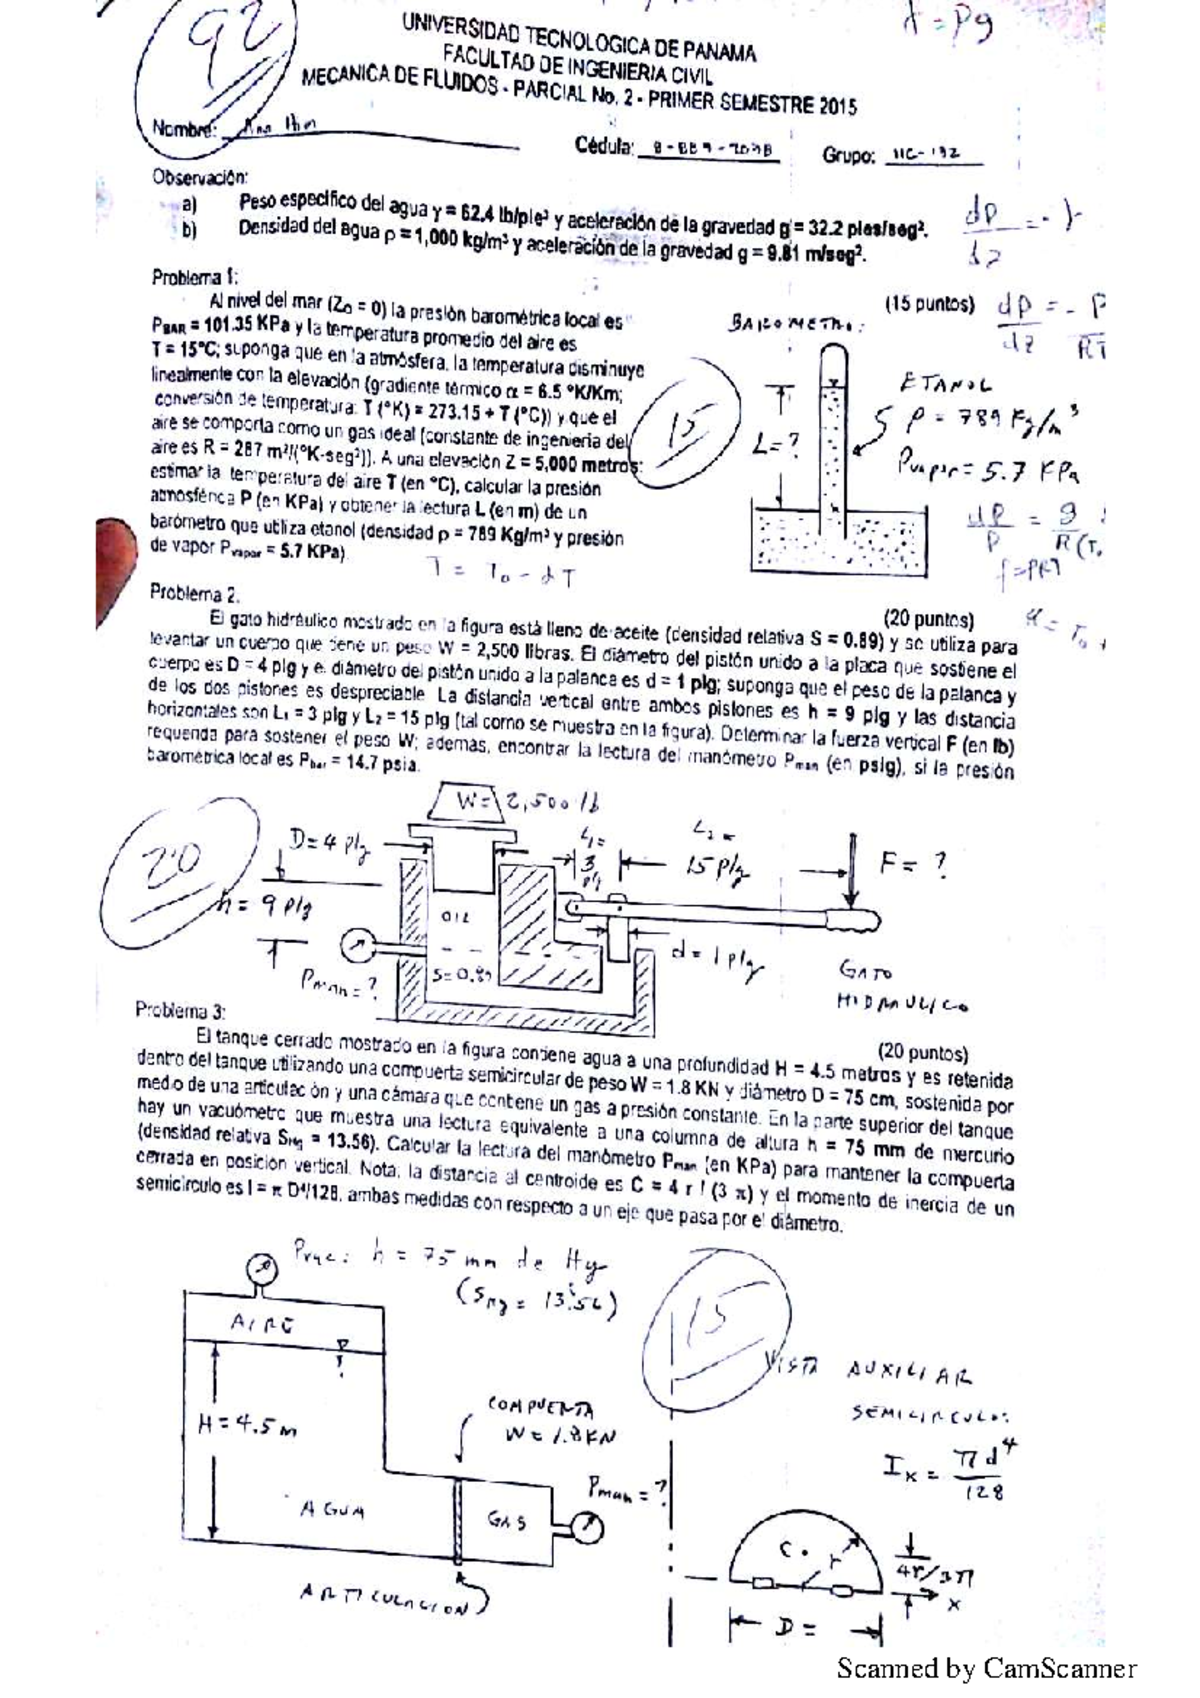 92
γ = ρg
UNIVERSIDAD TECNOLOGICA DE PANAMA
FACULTAD DE INGENIERIA CIVIL
MECANICA DE FLUIDOS - PARCIAL No. 2 - PRIMER SEMESTRE 2015
Nombre:
Cédula: Grupo:
Observación:
a) Peso específico del agua γ = 62.4 lb/pie³ y aceleración de la gravedad g = 32.2 pies/seg².
b) Densidad del agua ρ = 1,000 kg/m³ y aceleración de la gravedad g = 9.81 m/seg².
dp/dz = - γ
Problema 1: (15 puntos)
Al nivel del mar (Zo = 0) la presión barométrica local es
PBAR = 101.35 KPa y la temperatura promedio del aire es
T = 15°C; suponga que en la atmósfera, la temperatura disminuye
linealmente con la elevación (gradiente térmico α = 6.5 °K/Km;
conversión de temperatura: T (°K) = 273.15 + T (°C)) y que el
aire se comporta como un gas ideal (constante de ingenieria del
aire es R = 287 m²/(°K-seg²)). A una elevación Z = 5,000 metros:
estimar la temperatura del aire T (en °C), calcular la presión
atmosférica P (en KPa) y obtener la lectura L (en m) de un
barómetro que utiliza etanol (densidad ρ = 789 Kg/m³ y presión
de vapor Pvapor = 5.7 KPa)
15
BAROMETRO:
L = ?
ETANOL
ρ = 789 Kg/m³
Pvapor = 5.7 KPa
dp/dz = - P/RT
Problema 2. (20 puntos)
El gato hidráulico mostrado en la figura está lleno de aceite (densidad relativa S = 0.89) y se utiliza para
levantar un cuerpo que tiene un peso W = 2,500 libras. El diámetro del pistón unido a la placa que sostiene el
cuerpo es D = 4 plg y el diámetro del pistón unido a la palanca es d = 1 plg; suponga que el peso de la palanca y
de los dos pistones es despreciable. La distancia vertical entre ambos pistones es h = 9 plg y las distancia
horizontales son L₁ = 3 plg y L₂ = 15 plg (tal como se muestra en la figura). Determinar la fuerza vertical F (en lb)
requerida para sostener el peso W; además, encontrar la lectura del manómetro Pman (en psig), si la presión
barométrica local es Pbar = 14.7 psia.
20
W = 2,500 lb
D = 4 plg
h = 9 plg
L₁ = 3 plg
L₂ = 15 plg
F = ?
OIL
S = 0.89
Pman = ?
d = 1 plg
GATO
HIDRAULICO
Problema 3: (20 puntos)
El tanque cerrado mostrado en la figura contiene agua a una profundidad H = 4.5 metros y es retenida
dentro del tanque utilizando una compuerta semicircular de peso W = 1.8 KN y diámetro D = 75 cm, sostenida por
medio de una articulación y una cámara que contiene un gas a presión constante. En la parte superior del tanque
hay un vacuómetro que muestra una lectura equivalente a una columna de altura h = 75 mm de mercurio
(densidad relativa SHg = 13.56). Calcular la lectura del manómetro Pman (en KPa) para mantener la compuerta
cerrada en posición vertical. Nota: la distancia al centroide es C = 4 r / (3 π) y el momento de inercia de un
semicirculo es I = π D⁴/128, ambas medidas con respecto a un eje que pasa por el diámetro.
Pvac: h = 75 mm de Hg
(SHg = 13.56)
15
AIRE
H = 4.5 m
AGUA
COMPUERTA
W = 1.8 KN
GAS
Pman = ?
ARTICULACION
VISTA AUXILIAR
SEMICIRCULO:
Ix = πd⁴/128
C
r
4r/3π
x
D =
Scanned by CamScanner